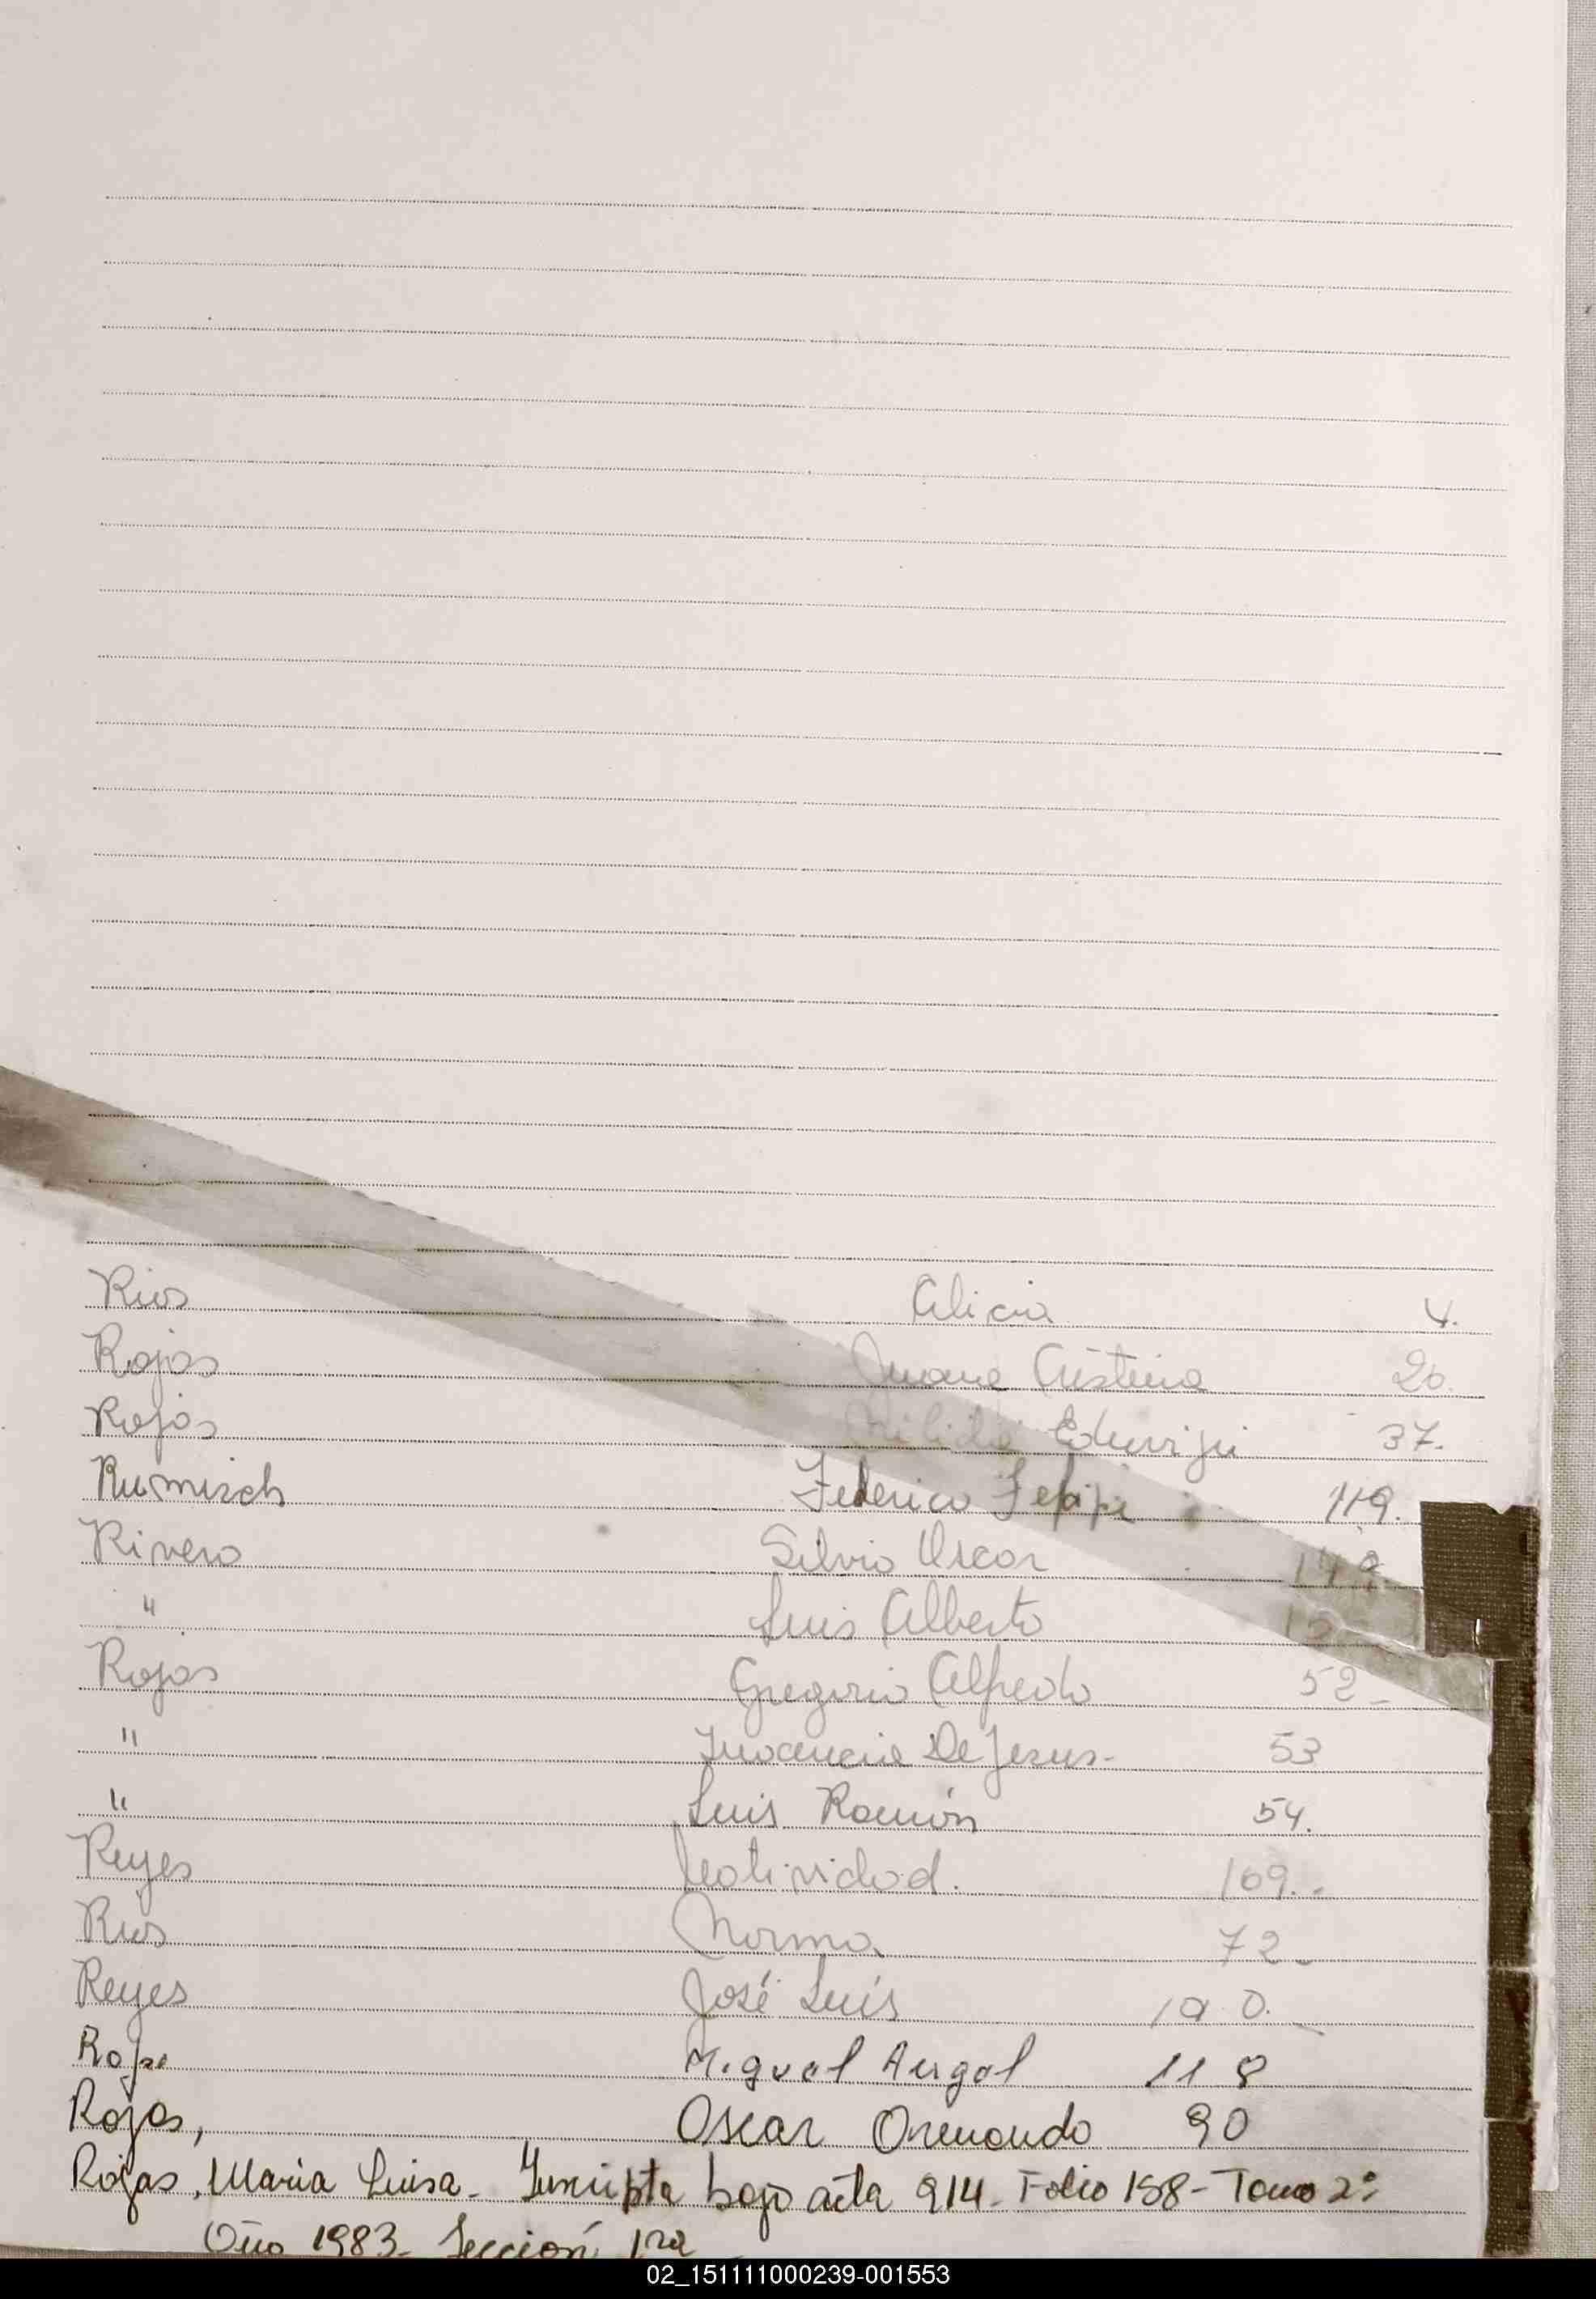 Rios Alicia 4.
Rojas Juana Cristina 20.
Rojas Eduvigi 37.
Rumisch Federico 119.
Rivero Silvio Oscar
" Luis Alberto
Rojas Gregorio Alfredo 52 -
" Inocencia De Jesus - 53
" Luis Ramón 54.
Reyes Natividad. 169. -
Rios Norma 72 -
Reyes José Luís
Rojas Miguel Angel 118
Rojas, Oscar Oremando 90
Rojas, Maria Luisa - Inscripta bajo acta 914 - Folio 158 - Tomo 2º
Año 1983 - Sección 1ra
02_151111000239-001553